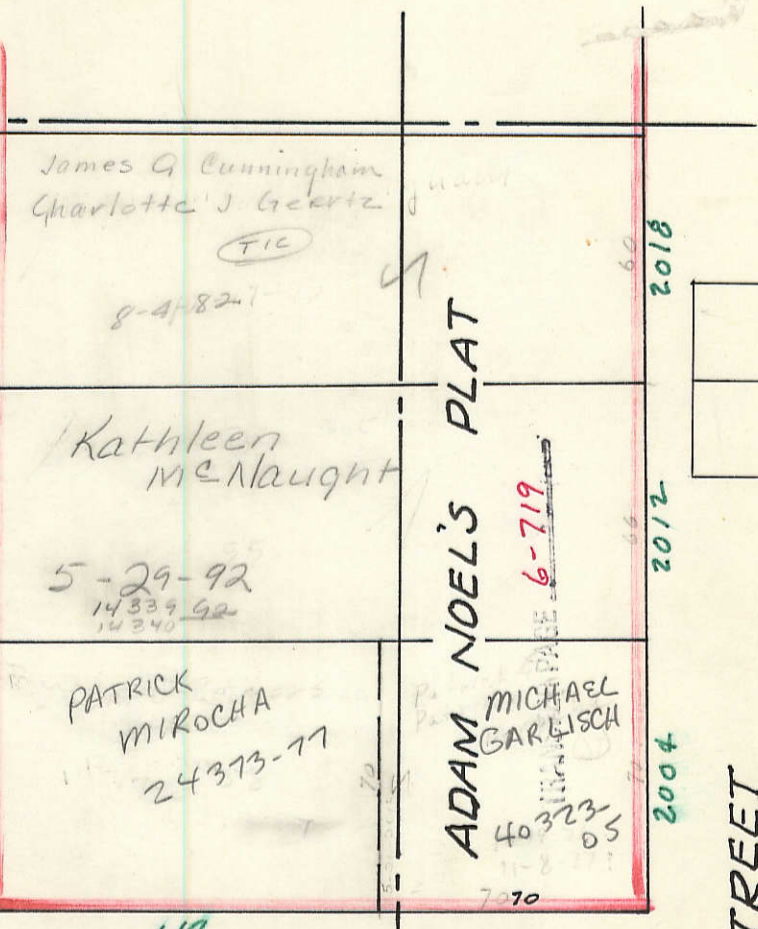 James A Cunningham
Charlotte J Geertz
TIC
8-4-82
60
2018
Kathleen
McNaught
5-29-92
14339 92
14340
ADAM NOEL'S PLAT
6-719
PAGE
66
2012
PATRICK
MIROCHA
24373-77
70
MICHAEL
GARLISCH
40323-
05
70
70
2004
STREET